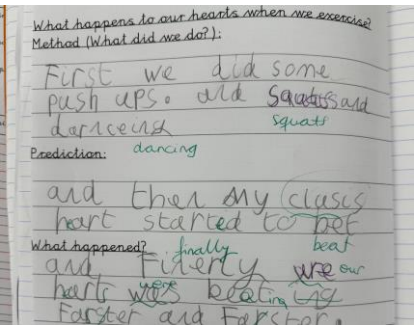 What happens to our hearts when we exercise?
Method (What did we do?):
First we did some
push ups. and Squatss and
danceing
squats
Prediction:
dancing
and then my clasis
heart started to bet
beat
What happened?
finally
and Finerly our
harts were beating
Farster and Farster.